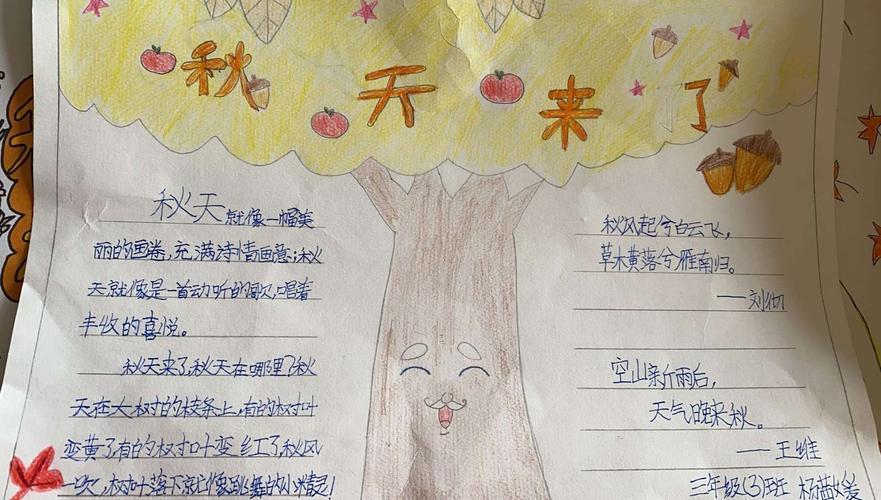 秋天来了
秋天就像一幅美
丽的画卷,充满诗情画意;秋
天就像是一首动听的歌,唱着
丰收的喜悦。
秋天来了,秋天在哪里?秋
天在大树的枝条上,有的树叶
变黄了,有的树叶变红了,秋风
一吹,树叶落下就像跳舞的小精灵!
秋风起兮白云飞,
草木黄落兮雁南归。
——刘彻
空山新雨后,
天气晚来秋。
——王维
三年级(3)班